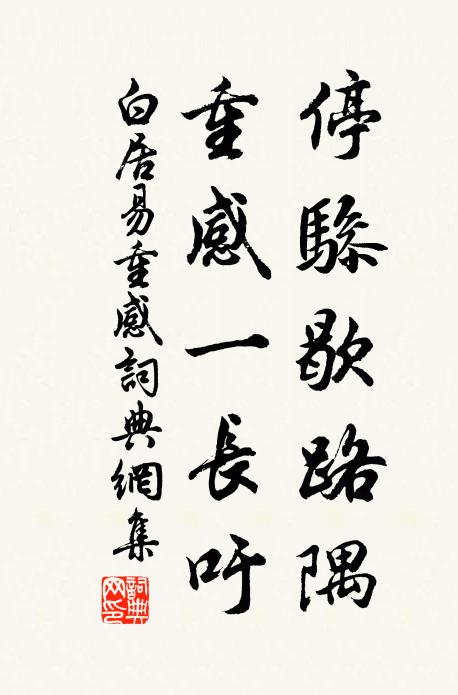 停驂歇路隅
重感一長吁
白居易重感詞典網集
詞典網印